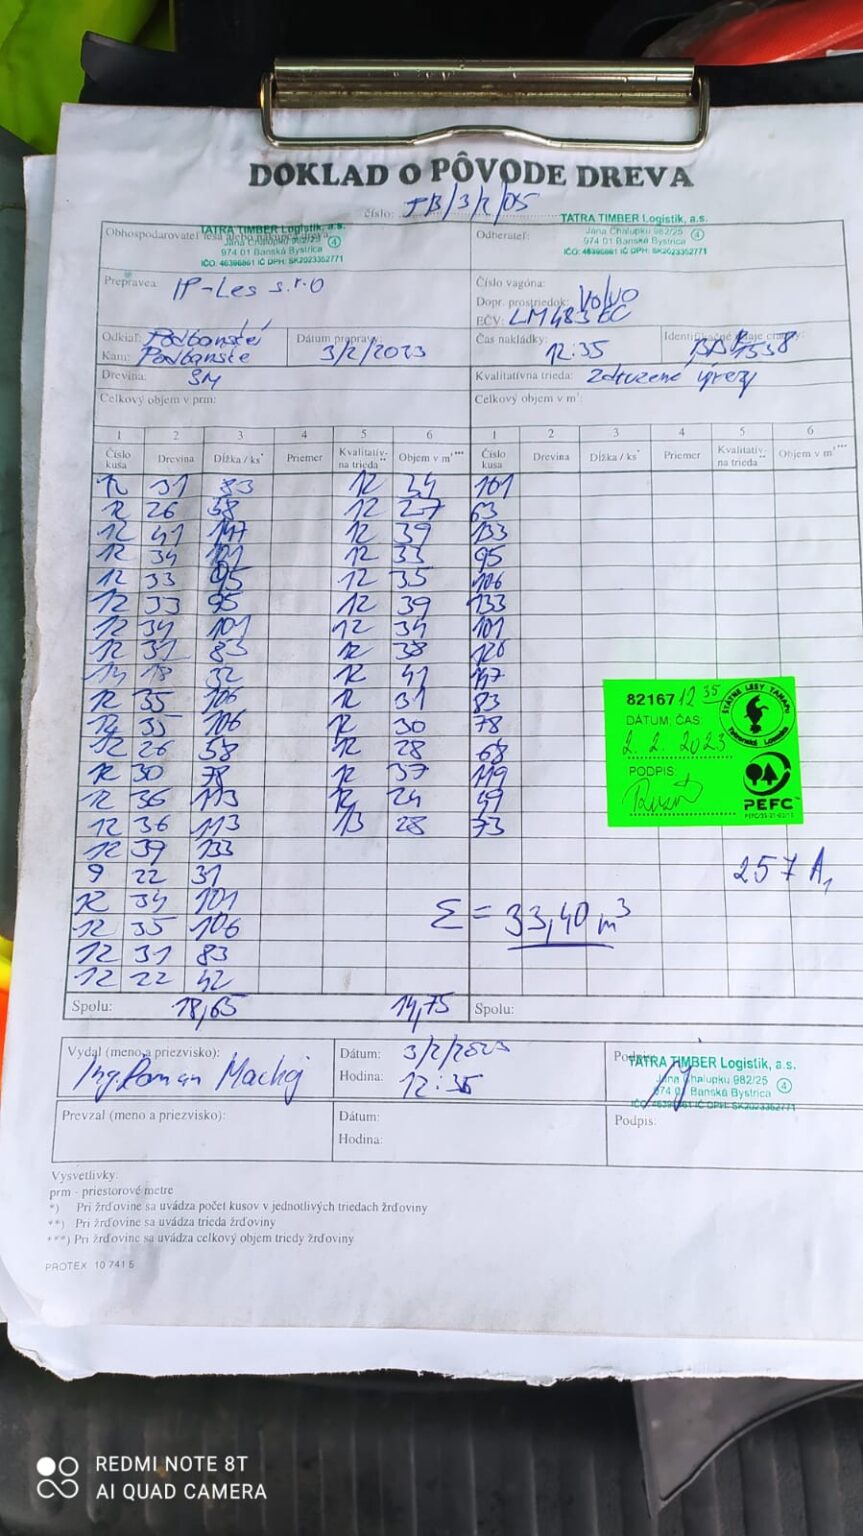 DOKLAD O PÔVODE DREVA
číslo: TB/3/2/05
Obhospodarovateľ lesa alebo nákupca dreva:
TATRA TIMBER Logistik, a.s.
Jána Chalupku 982/25 4
974 01 Banská Bystrica
IČO: 46396861 IČ DPH: SK2023352771
Odberateľ:
TATRA TIMBER Logistik, a.s.
Jána Chalupku 982/25 4
974 01 Banská Bystrica
IČO: 46396861 IČ DPH: SK2023352771
Prepravca: IP-Les s.r.o
Číslo vagóna:
Dopr. prostriedok: Volvo
EČV: LM483EC
Odkiaľ: Podbanské
Kam: Podbanské
Dátum prepravy: 3/2/2023
Čas nakládky: 12:35
Drevina: SM
Kvalitatívna trieda: Združené výrezy
Celkový objem v prm:
Celkový objem v m³:
1 2 3 4 5 6 1 2 3 4 5 6
Číslo kusa Drevina Dĺžka / ks* Priemer Kvalitatív- na trieda** Objem v m³*** Číslo kusa Drevina Dĺžka / ks* Priemer Kvalitatív- na trieda** Objem v m³***
12 31 83 12 34 101
12 26 58 12 27 63
12 41 147 12 39 133
12 34 101 12 33 95
12 33 95 12 35 106
12 33 95 12 39 133
12 34 101 12 34 101
12 31 83 12 38 126
14 18 32 12 41 147
12 35 106 12 31 83
12 35 106 12 30 78
12 26 58 12 28 68
12 30 78 12 37 119
12 36 113 12 24 49
12 36 113 13 28 73
12 39 133
9 22 31
12 34 101
12 35 106
12 31 83
12 22 42
82167 12 35
DÁTUM: ČAS:
2. 2. 2023
PODPIS:
ŠTÁTNE LESY TANAPu
Tatranská Lomnica
PEFC
257 A1
Σ = 33,40 m³
Spolu: 18,65 14,75 Spolu:
Vydal (meno a priezvisko):
Ing. Roman Machaj
Dátum: 3/2/2023
Hodina: 12:35
Podpis:
TATRA TIMBER Logistik, a.s.
Jána Chalupku 982/25 4
974 01 Banská Bystrica
IČO: 46396861 IČ DPH: SK2023352771
Prevzal (meno a priezvisko):
Dátum:
Hodina:
Podpis:
Vysvetlivky:
prm - priestorové metre
*) Pri žrďovine sa uvádza počet kusov v jednotlivých triedach žrďoviny
**) Pri žrďovine sa uvádza trieda žrďoviny
***) Pri žrďovine sa uvádza celkový objem triedy žrďoviny
PROTEX 10 741 5
REDMI NOTE 8T
AI QUAD CAMERA